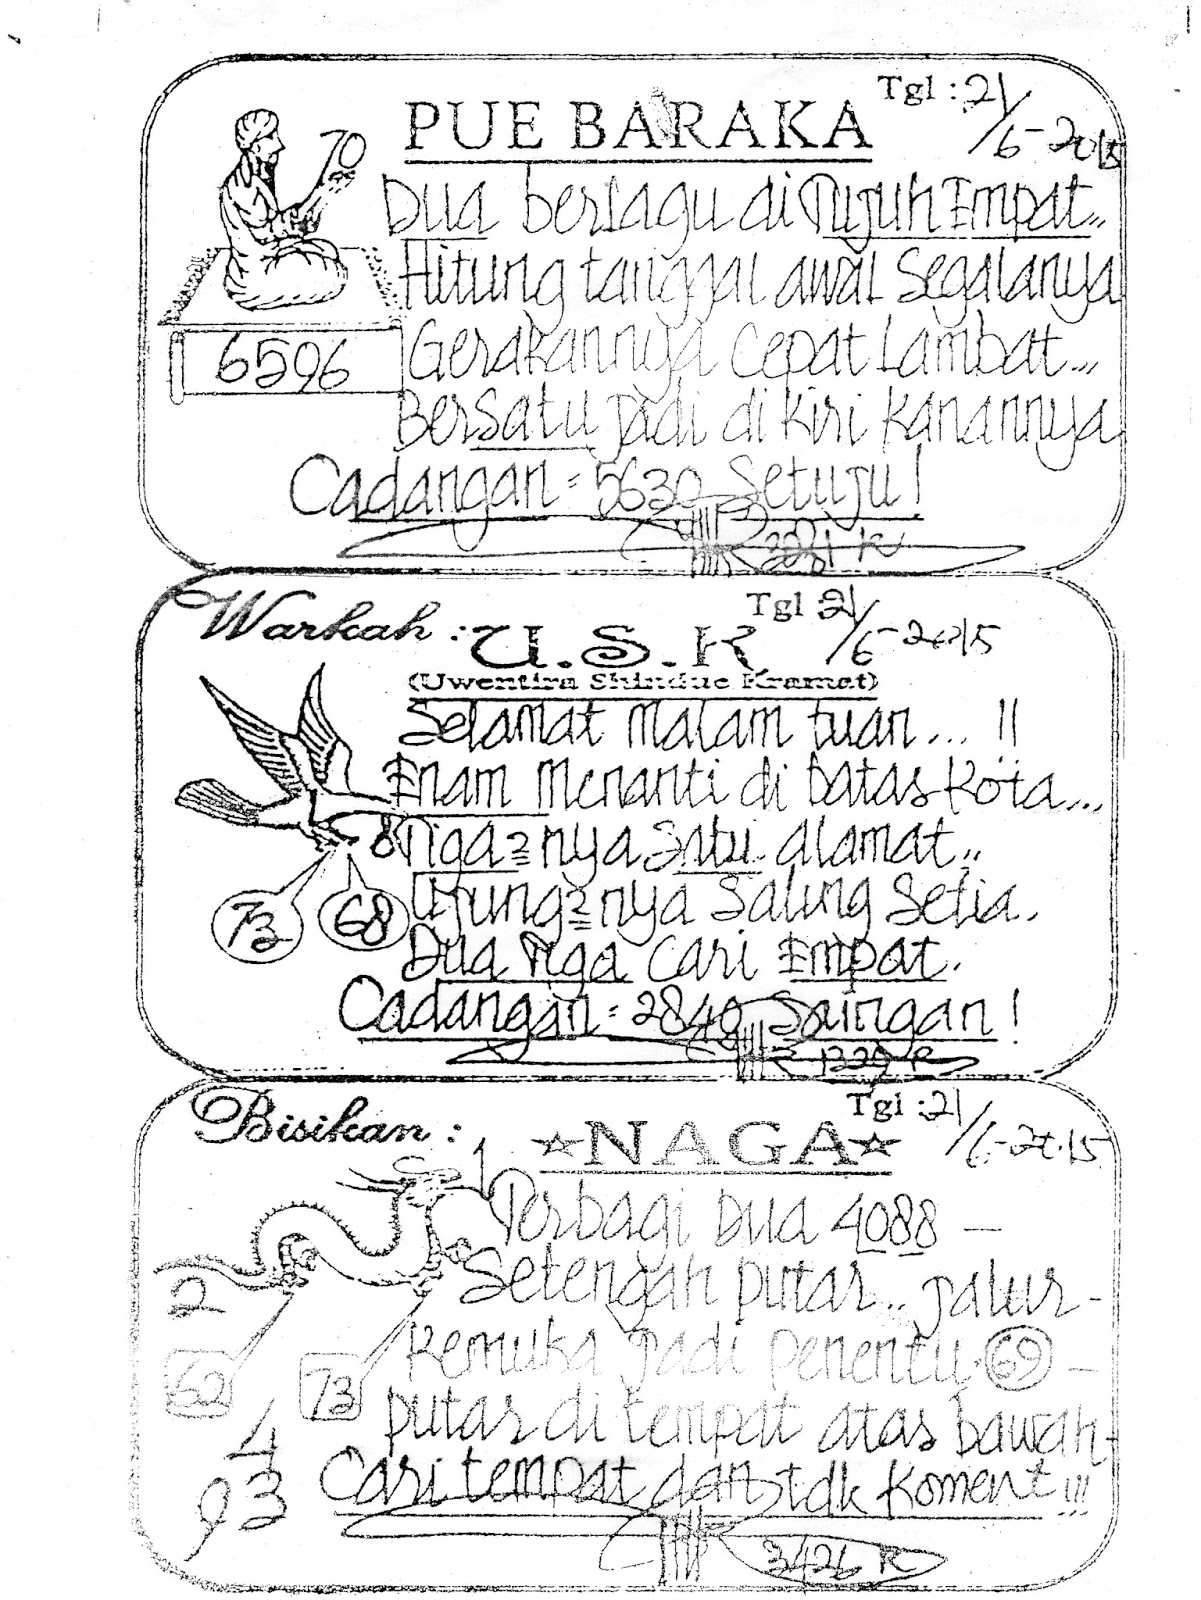 Tgl : 21/6-2015
PUE BARAKA
70
Dua berlagu di Tujuh Empat..
Hitung tanggal awal Segalanya
6596
Gerakannya Cepat Lambat...
Bersatu jadi di Kiri Kanannya
Cadangan = 5630 Setuju !
Warkah : U.S.K
Tgl : 21/6-2015
(Uwentira Shindue Kramat)
Selamat Malam tuan... !!
Enam Menanti di batas Kota...
8
Tiga2nya Satu alamat,,
73 68
Ujung2nya Saling Setia.
Dua Tiga Cari Empat.
Cadangan = 2840 Saingan !
1329 R
Bisikan : ☆NAGA☆
Tgl : 21/6-2015
1
Terbagi Dua 4088 -
Setengah putar.. jalur -
2
Kemuka jadi penentu. 69 -
62 73
putar di tempat atas bawah -
4
Cari tempat dan tdk Koment !!!
93
3426 R